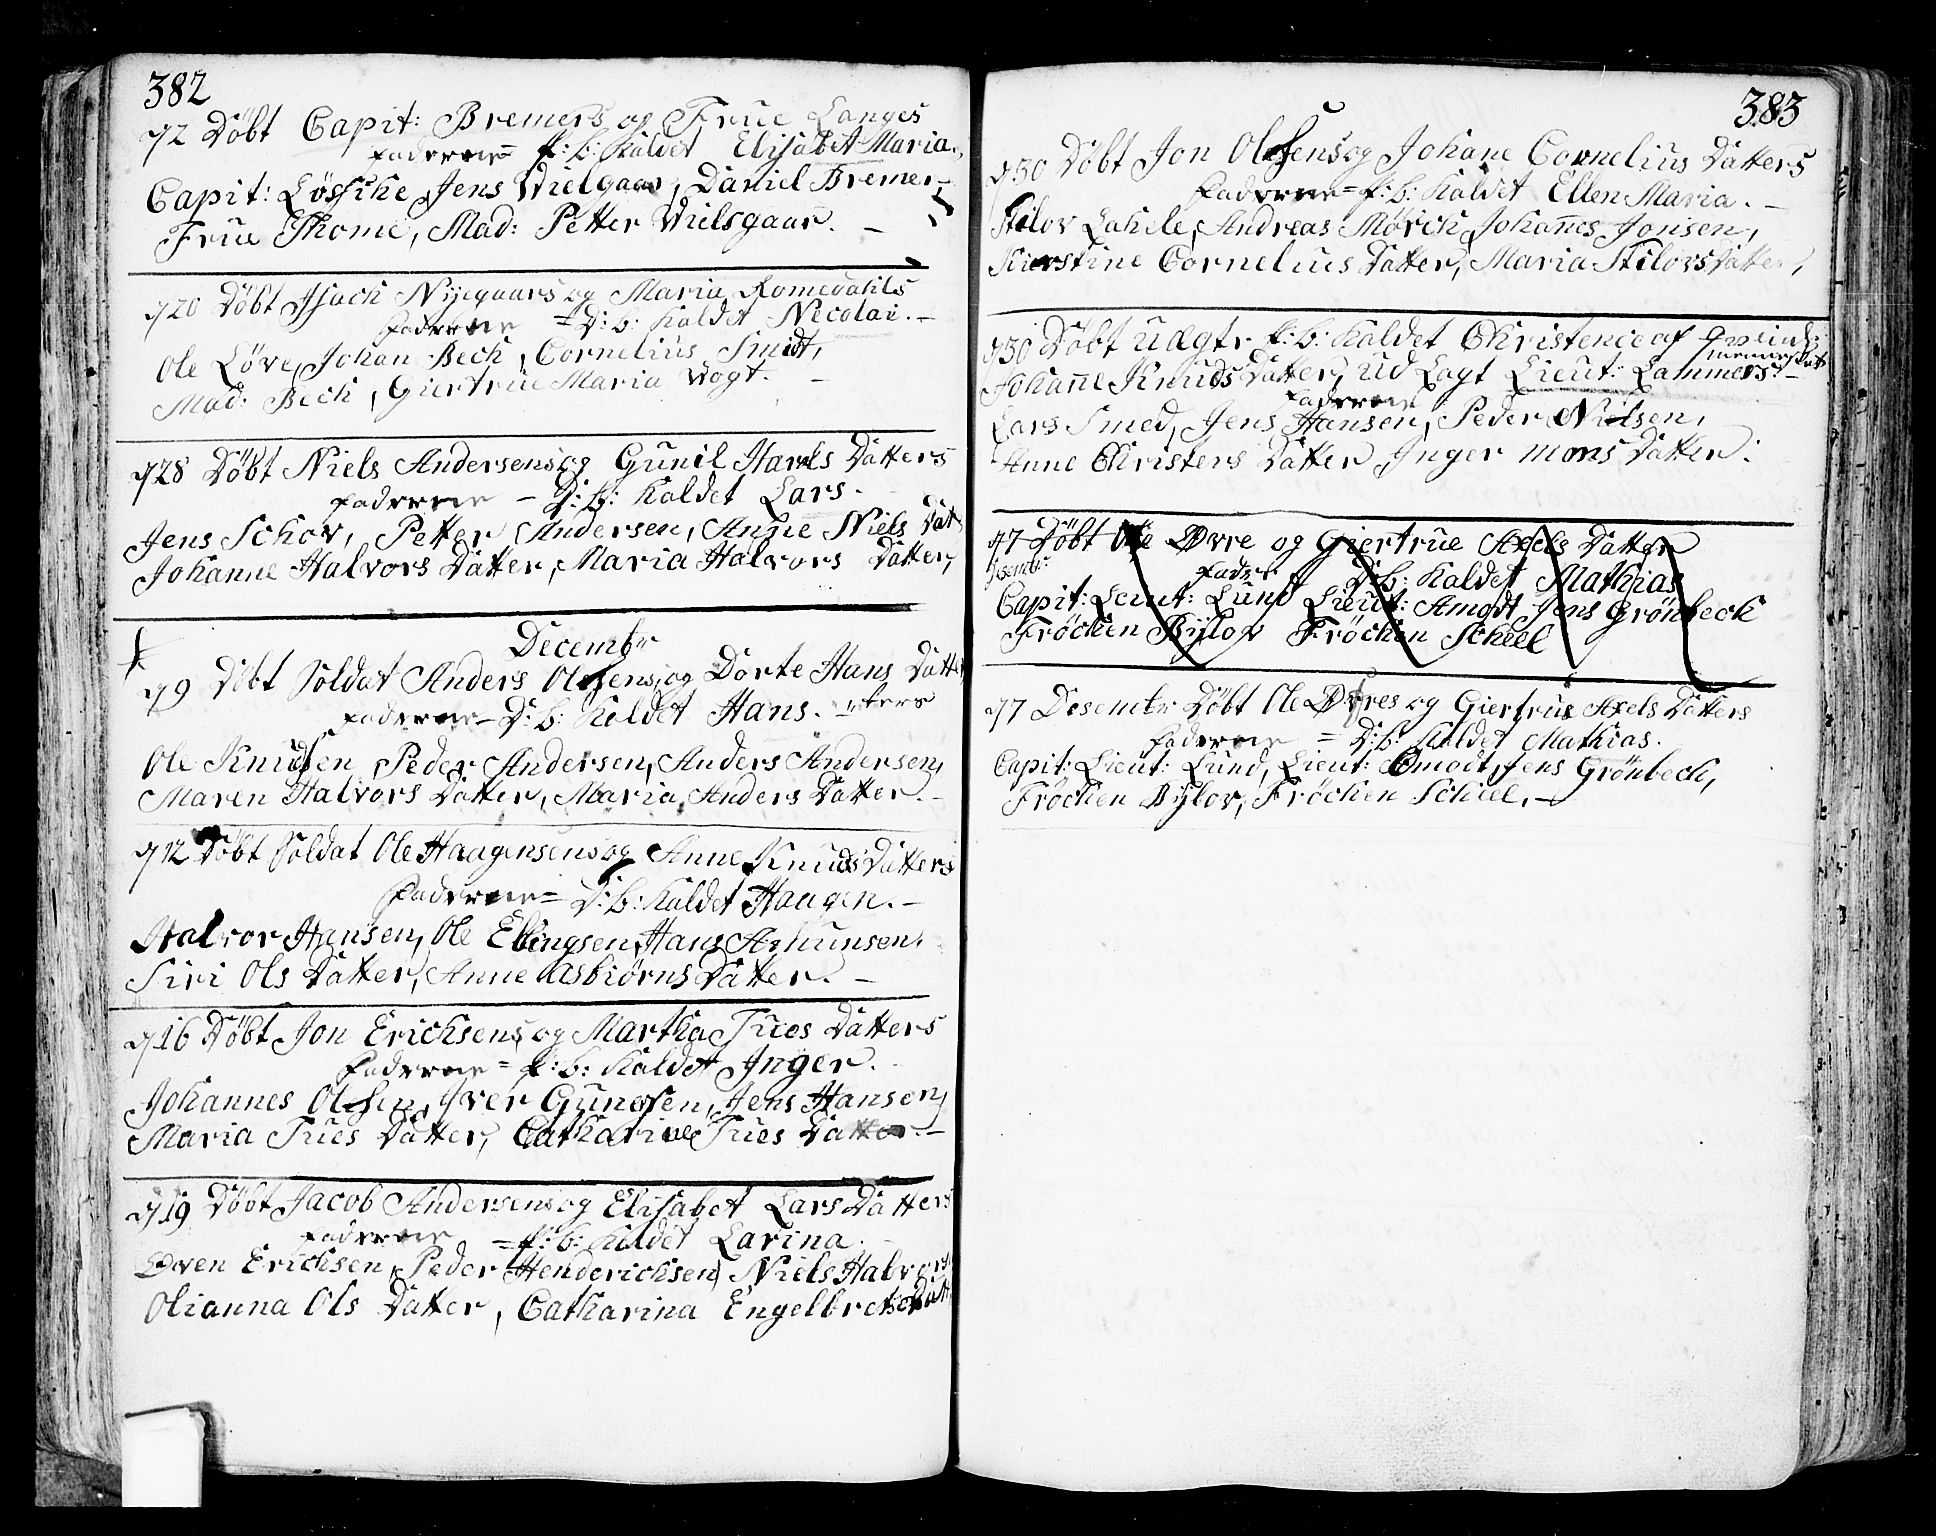 382
72 Döbt Capit: Bremers og Frue Langes
Fadderne = f: b: kaldet Elisabet Maria.
Capit: Lössike, Jens Wielgaar, Daniel Bremer
Frue Thome, Mad: Petter Wielsgaar. –
720 Döbt Isach Nyegaars og Maria Romedahls
Fadderne = D: b: kaldet Nicolai. –
Ole Löve, Johan Bech, Cornelius Smidt,
Mad: Bech, Giertrue Maria Vogt. –
728 Döbt Niels Andersens og Gunil Datters
Fadderne – D: b: kaldet Lars.
Jens Schov, Petter Andersen, Anne Niels Dat
Johanne Halvors Datter, Maria Halvors Datter,
Decembr
79 Döbt Soldat Anders Olesens og Dorte Hans Datte
Fadderne – D: b: kaldet Hans.
Ole Knudsen, Peder Andersen, Anders Andersen,
Maren Halvors Datter, Maria Anders Datter. –
712 Döbt Soldat Ole Haagensens og Anne Knuds Datters
Fadderne = D: b: kaldet Haagen. –
Halvor Hansen, Ole Ellingsen, Hans
Siri Ols Datter, Anne Asbiörns Datter. –
716 Döbt Jon Erichsens og Martha Tues Datters
Fadderne = f: b: kaldet Inger.
Johannes Olsen, Iver Gunersen, Jens Hansen,
Maria Tues Datter, Catharine Tues Datter. –
719 Döbt Jacob Andersens og Elisabet Lars Datters
Fadderne = f: b: kaldet Larina.
Even Erichsen, Peder Henderichsen, Niels Halvors
Olianna Ols Datter, Catharina Engelbrets Dat
383
730 Döbt Jon Olesens og Johane Cornelius Datters
Fadderne = f: b: kaldet Ellen Maria. –
Stilov Andreas Mörch, Johanes Jonsen,
Kierstine Cornelius Datter, Maria Stilovs Datter,
730 Döbt Uægte f: b: kaldet Christence af
Johanne Knuds Datter, ud Lagt Lieut: Lammers. –
Fadderne
Lars Smed, Jens Hansen, Peder Nielsen,
Anne Christers Datter, Inger Mons Datter.
77 Döbt Ole Øvre og Giertrue Axels Datter
Desembr Fadder D: b: kaldet Mathias
Capit: Leiut: Lund Lieut: Amodt Jens Grönbeck
Fröchen Bylov Fröchen Scheel
77 Desembr Döbt Ole Øvres og Giertrue Axels Datters
Fadderne = D: b: kaldet Mathias.
Capit: Lieut: Lund, Lieut: Omodt, Jens Grönbeck,
Fröchen Bylov, Fröchen Scheel, –